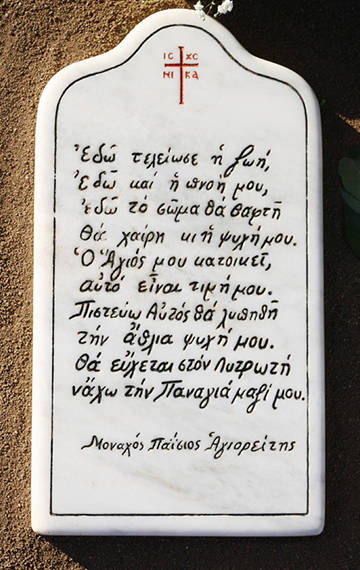 ΙC XC
ΝΙ ΚΑ
Ἐδῶ τελείωσε ἡ ζωή,
ἐδῶ καί ἡ πνοή μου,
ἐδῶ τό σῶμα θά θαφτῆ
θά χαίρη κι ἡ ψυχή μου.
Ὁ Ἅγιός μου κατοικεῖ,
αὐτό εἶναι τιμή μου.
Πιστεύω Αὐτός θά λυπηθῆ
τήν ἄθλια ψυχή μου.
Θά εὔχεται στόν Λυτρωτή
νἄχω τήν Παναγιά μαζί μου.
Μοναχός Παΐσιος Ἁγιορείτης